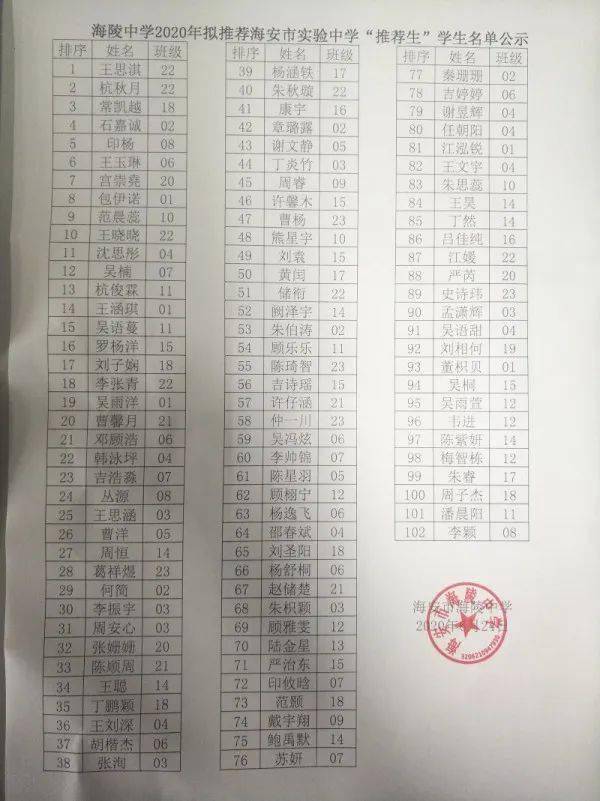 海陵中学2020年拟推荐海安市实验中学“推荐生”学生名单公示
排序 姓名 班级
1 王思淇 22
2 杭秋月 22
3 常凯越 18
4 石嘉诚 02
5 印杨 08
6 王玉琳 06
7 宫崇尧 20
8 包伊诺 01
9 范晨蕊 10
10 王晓晓 22
11 沈思彤 04
12 吴楠 07
13 杭俊霖 11
14 王涵琪 01
15 吴语蔓 11
16 罗杨洋 15
17 刘子娴 18
18 李张青 22
19 吴雨洋 01
20 曹馨月 21
21 邓顾浩 06
22 韩泳坪 04
23 吉浩淼 07
24 丛源 08
25 王思涵 03
26 曹洋 05
27 周恒 14
28 葛祥煜 23
29 何简 02
30 李振宇 03
31 周安心 03
32 张姗姗 20
33 陈顺周 21
34 王聪 14
35 丁鹏颖 18
36 王刘深 04
37 胡楷杰 06
38 张洵 03
排序 姓名 班级
39 杨涵轶 17
40 朱秋璇 22
41 康宇 16
42 章璐露 02
43 谢文静 05
44 丁炎竹 03
45 周睿 09
46 许馨木 15
47 曹杨 23
48 熊星宇 10
49 刘袁 15
50 黄闰 17
51 储衔 22
52 阙泽宇 14
53 朱伯涛 02
54 顾乐乐 11
55 陈琦智 23
56 吉诗瑶 15
57 许仔涵 21
58 仲一川 23
59 吴冯炫 06
60 李帅锦 07
61 陈星羽 05
62 顾栩宁 12
63 杨逸飞 06
64 邵春斌 04
65 刘圣阳 18
66 杨舒桐 06
67 赵储楚 21
68 朱枳颖 03
69 顾雅雯 12
70 陆金星 13
71 严治东 15
72 印攸晗 07
73 范颢 18
74 戴宇翔 09
75 鲍禹默 14
76 苏妍 07
排序 姓名 班级
77 秦珊珊 02
78 吉婷婷 06
79 谢昱辉 04
80 任朝阳 04
81 江泓锐 01
82 王文宇 04
83 朱思蕊 10
84 王昊 14
85 丁然 14
86 吕佳纯 16
87 江媛 22
88 严芮 20
89 史诗玮 23
90 孟潇辉 03
91 吴语甜 04
92 刘相何 19
93 董枳贝 01
94 吴桐 15
95 吴雨萱 12
96 韦进 12
97 陈紫妍 14
98 梅智栋 12
99 朱睿 17
100 周子杰 18
101 潘晨阳 11
102 李颖 08
海安市海陵中学
2020年